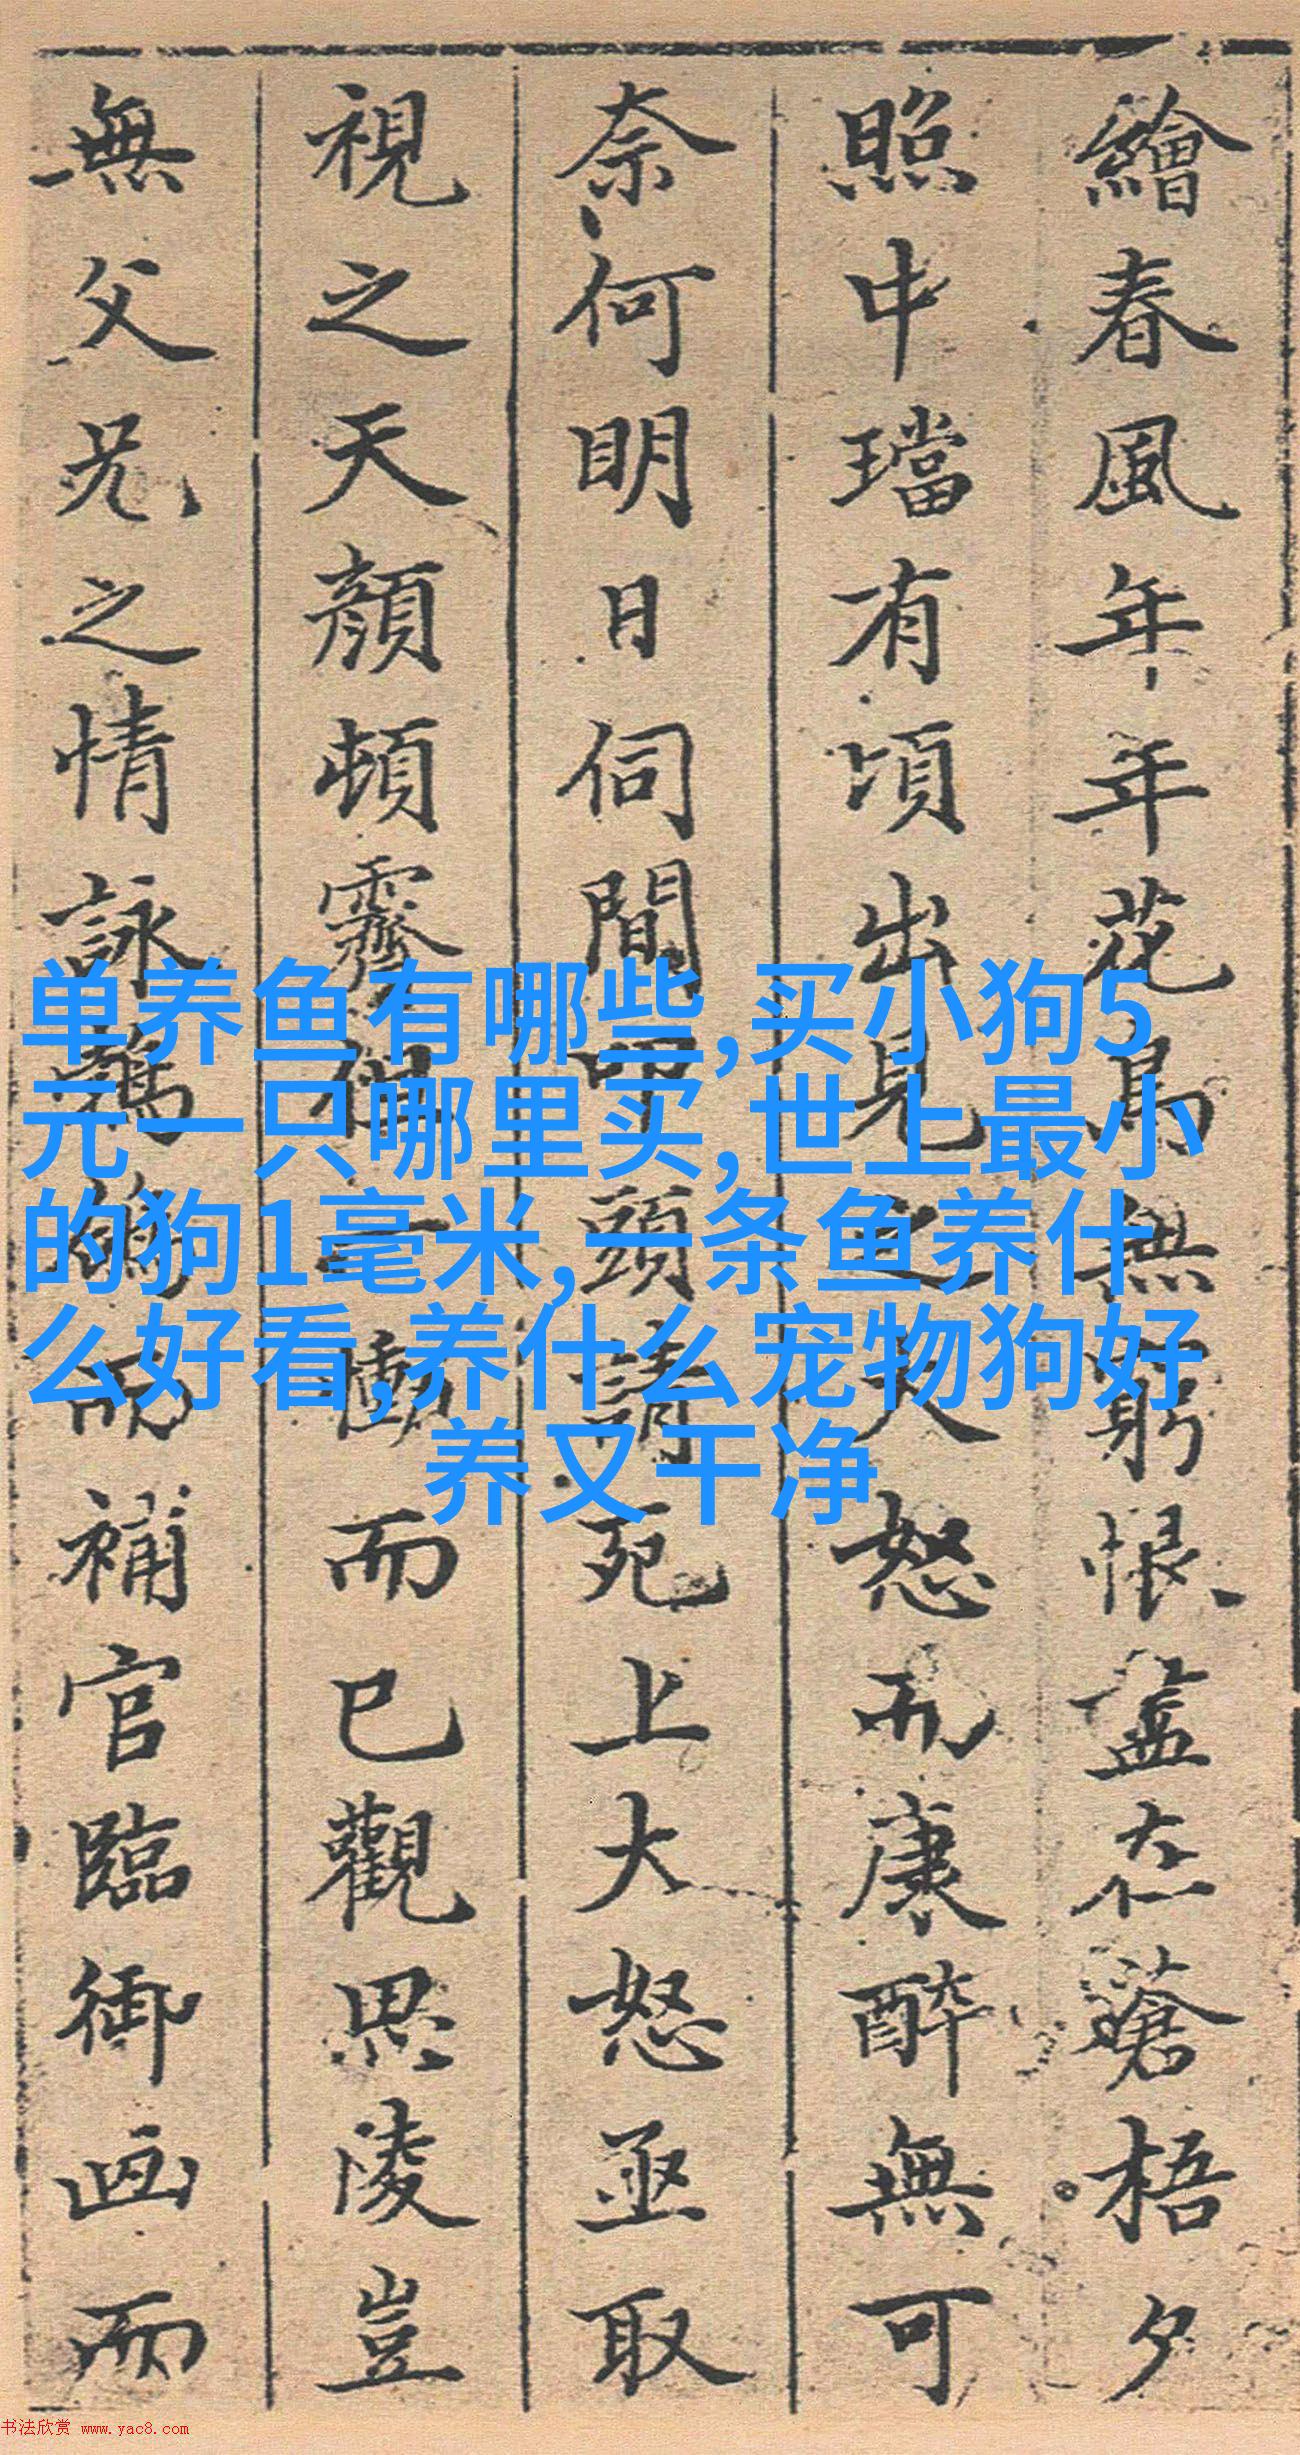 繪春風年年花鳥無窮恨盡在蒼梧夕
照中璫有頃出見之大怒而康醉無可
奈何明日伺間叩頭請死上大怒亟取
視之天顏頓霽但一慟而已觀思陵豈
無父兄之情詠鶺鴒而補官臨御画而
单养鱼有哪些,买小狗5
元一只哪里买,世上最小
的狗1毫米,一条鱼养什
么好看,养什么宠物狗好
养又干净
书法欣赏 www.yac8.com